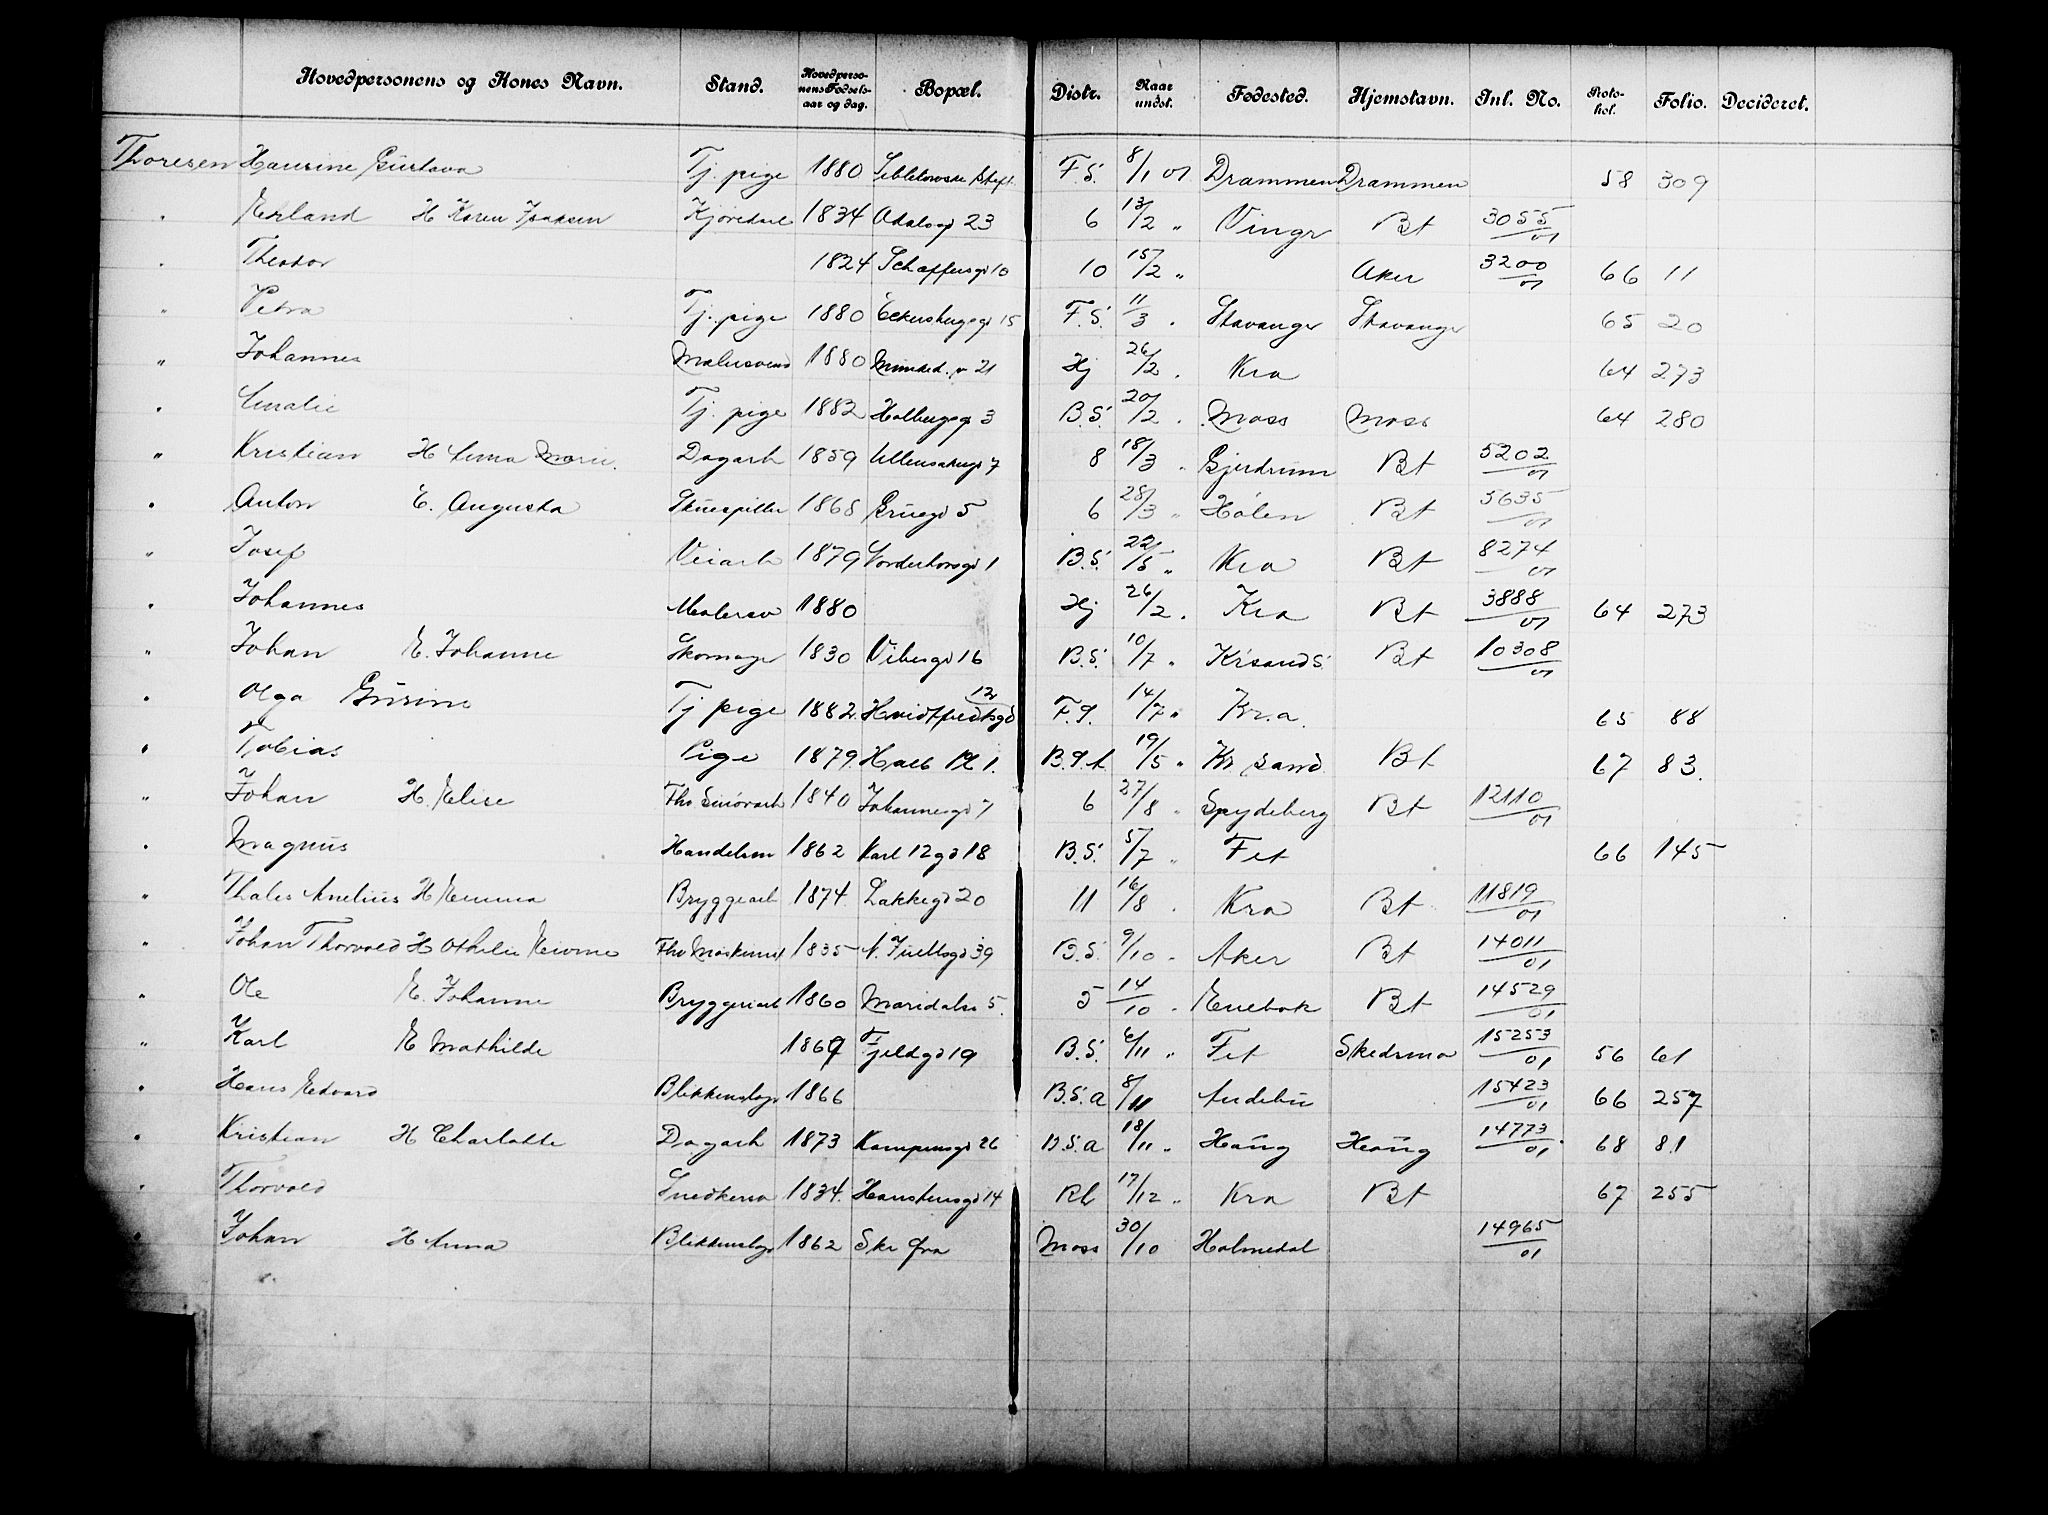 Hovedpersonens og Kones Navn. Stand. Hovedpersonens Fødselsaar og dag. Bopæl. Distr. Naar undst. Fødested. Hjemstavn. Inl. No. Protokol. Folio. Decideret.
Thoresen Gustava Tj. pige 1880 F.S. 8/1 01 Drammen Drammen 58 309
" Erland H Karen 1834 23 6 13/2 " Vinger Bt 3055/01
" Theodor 1824 10 10 15/2 " Aker 3200/01 66 11
" Petra Tj. pige 1880 15 F.S. 11/3 " Stavanger Stavanger 65 20
" Johannes Malersvend 1880 21 Hj 26/2 " Kra 64 273
" Emalie Tj. pige 1882 Holbergsgd 3 B.S. 20/2 " Moss Moss 64 280
" Kristian H Anna Marie. Dagarb 1859 Ullensakergd 7 8 18/3 " Gjerdrum Bt 5202/01
" Anton E. Augusta Skuespiller 1868 Gruegd 5 6 28/3 " Hølen Bt 5635/01
" Josef Veiarb 1879 1 B.S. 22/5 " Kra Bt 8274/01
" Johannes Malersv 1880 Hj 26/2 " Kra Bt 3888/01 64 273
" Johan E. Johanne Skomager 1830 Vibesgd 16 B.S. 10/7 " Kr'sands Bt 10308/01
" Olga Gurine Tj pige 1882 12 F.S. 14/7 " Kr.a. 65 88
" Tobias Pige 1879 Pl 1. B.S.A 19/5 " Kr sand Bt 67 83.
" Johan H. Elise 1840 Johannesgd 7 6 27/8 " Spydeberg Bt 12110/01
" Magnus Handelsm 1862 Karl 12 gd 18 B.S. 5/7 " Fet 66 145
" Thales H Emma Bryggearb 1874 Lakkegd 20 11 16/8 " Kra Bt 11819/01
" Johan Thorvald H Othilie 1835 N. Juelsgd 39 B.S. 9/10 " Aker Bt 14011/01
" Ole E. Johanne Bryggeriarb 1860 Maridalsv 5. 5 14/10 " Enebak Bt 14529/01
" Karl E Mathilde Fjeldgd 19 B.S. 6/11 " Fet Skedsmo 15253/01 56 61
" Hans Edvard Blikkenslagr 1866 B.S.a 8/11 Andebu 15423/01 66 257
" Kristian H Charlotte Dagarb 1873 Kampensgd 26 B.S.a 18/11 " Haug Haug 14773/01 68 81
" Thorvald Snedkersv 1834. Hanstensgd 14 Rb 17/12 " Kra Bt 67 255
" Johan H Anna Blikkenslagr 1862 Ske fra Moss 30/10 Holmedal 14965/01